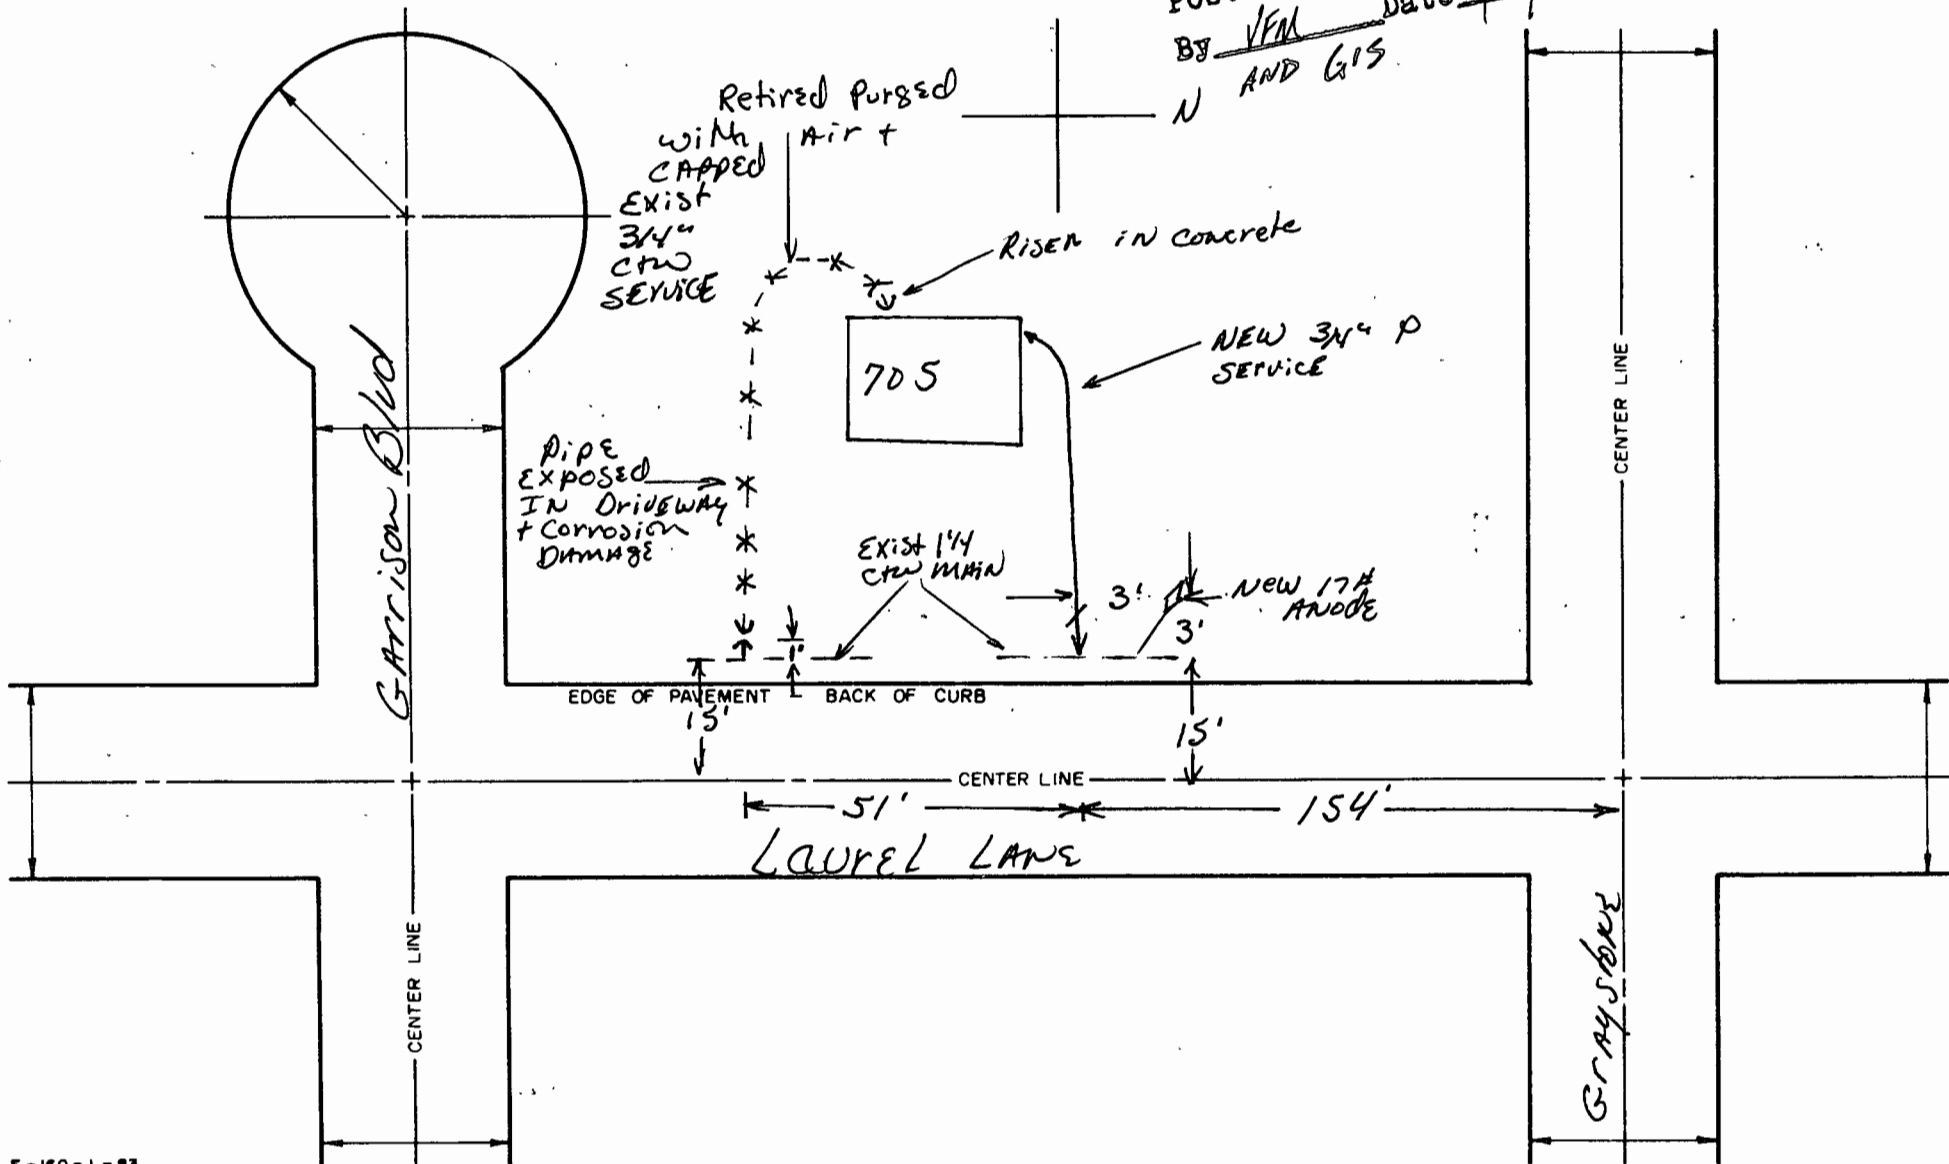 By VFM Date
AND GIS
N
Retired Purged
with Air +
CAPPED
Exist
3/4"
CTW
SERVICE
RISER IN Concrete
NEW 3/4" P
SERVICE
705
Pipe
Exposed
IN Driveway
+ Corrosion
DAMAGE
Exist 1 1/4
CTW MAIN
3'
New 17#
ANODE
3'
1'
EDGE OF PAVEMENT
BACK OF CURB
15'
15'
CENTER LINE
51'
154'
LAUREL LANE
Garrison Blvd
CENTER LINE
CENTER LINE
Graystone